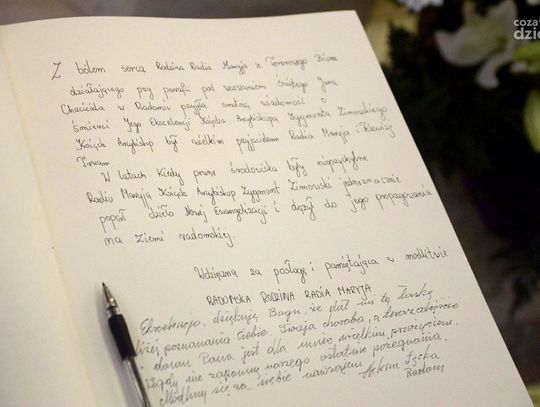 Z bólem serca Rodzina Radia Maryja z Terenowego Biura
działającego przy parafii pod wezwaniem świętego Jana
Chrzciciela w Radomiu przyjęła smutną wiadomość o
śmierci Jego Ekscelencji Księdza Arcybiskupa Zygmunta Zimowskiego
Ksiądz Arcybiskup był wielkim przyjacielem Radia Maryja i Telewizji
Trwam.
W latach kiedy pewne środowiska były nieprzychylne
Radiu Maryja Ksiądz Arcybiskup Zygmunt Zimowski jednoznacznie
poparł dzieło Nowej Ewangelizacji i dążył do jego propagowania
na ziemi radomskiej.
Wdzięczna za posługę i pamiętająca w modlitwie
RADOMSKA RODZINA RADIA MARYJA
Ekscelencjo, dziękuję Bogu, że dał mi tę łaskę
bliżej poznawania Ciebie. Twoja choroba, a teraz odejście
domu Pana jest dla mnie wielkim przeżyciem.
Nigdy nie zapomnę naszego ostatnie pożegnania,
Módlmy się za siebie nawzajem
Helena
Radom
coza
dzie